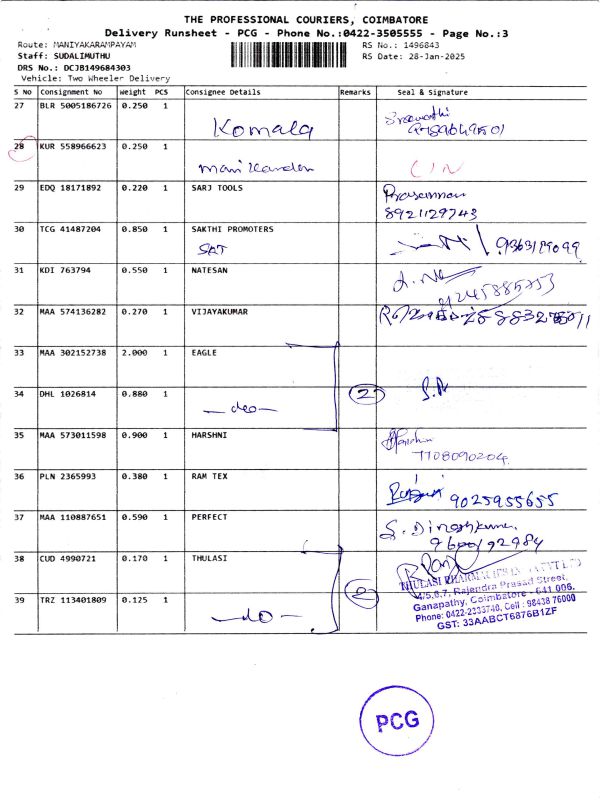 THE PROFESSIONAL COURIERS, COIMBATORE
Delivery Runsheet - PCG - Phone No.:0422-3505555 - Page No.:3
Route: MANIYAKARAMPAYAM RS No.: 1496843
Staff: SUDALIMUTHU RS Date: 28-Jan-2025
DRS No.: DCJB149684303
Vehicle: Two Wheeler Delivery
S No Consignment No Weight PCS Consignee Details Remarks Seal & Signature
27 BLR 5005186726 0.250 1
Komala
28 KUR 558966623 0.250 1
Manikandan
29 EDQ 18171892 0.220 1 SARJ TOOLS Prasannan
8921129743
30 TCG 41487204 0.850 1 SAKTHI PROMOTERS
SAT
31 KDI 763794 0.550 1 NATESAN
32 MAA 574136282 0.270 1 VIJAYAKUMAR
33 MAA 302152738 2.000 1 EAGLE
34 DHL 1026814 0.880 1 2
-do-
35 MAA 573011598 0.900 1 HARSHNI
7708090204
36 PLN 2365993 0.380 1 RAM TEX
9025955655
37 MAA 110887651 0.590 1 PERFECT S. Dineshkumar
9600192984
38 CUD 4990721 0.170 1 THULASI
THULASI PHARMACIES
4/5,6,7, Rajendra Prasad Street,
39 TRZ 113401809 0.125 1 2
Ganapathy, Coimbatore - 641 006.
-do-
Phone: 0422-2333748, Cell : 98438 76000
GST: 33AABCT6876B1ZF
PCG